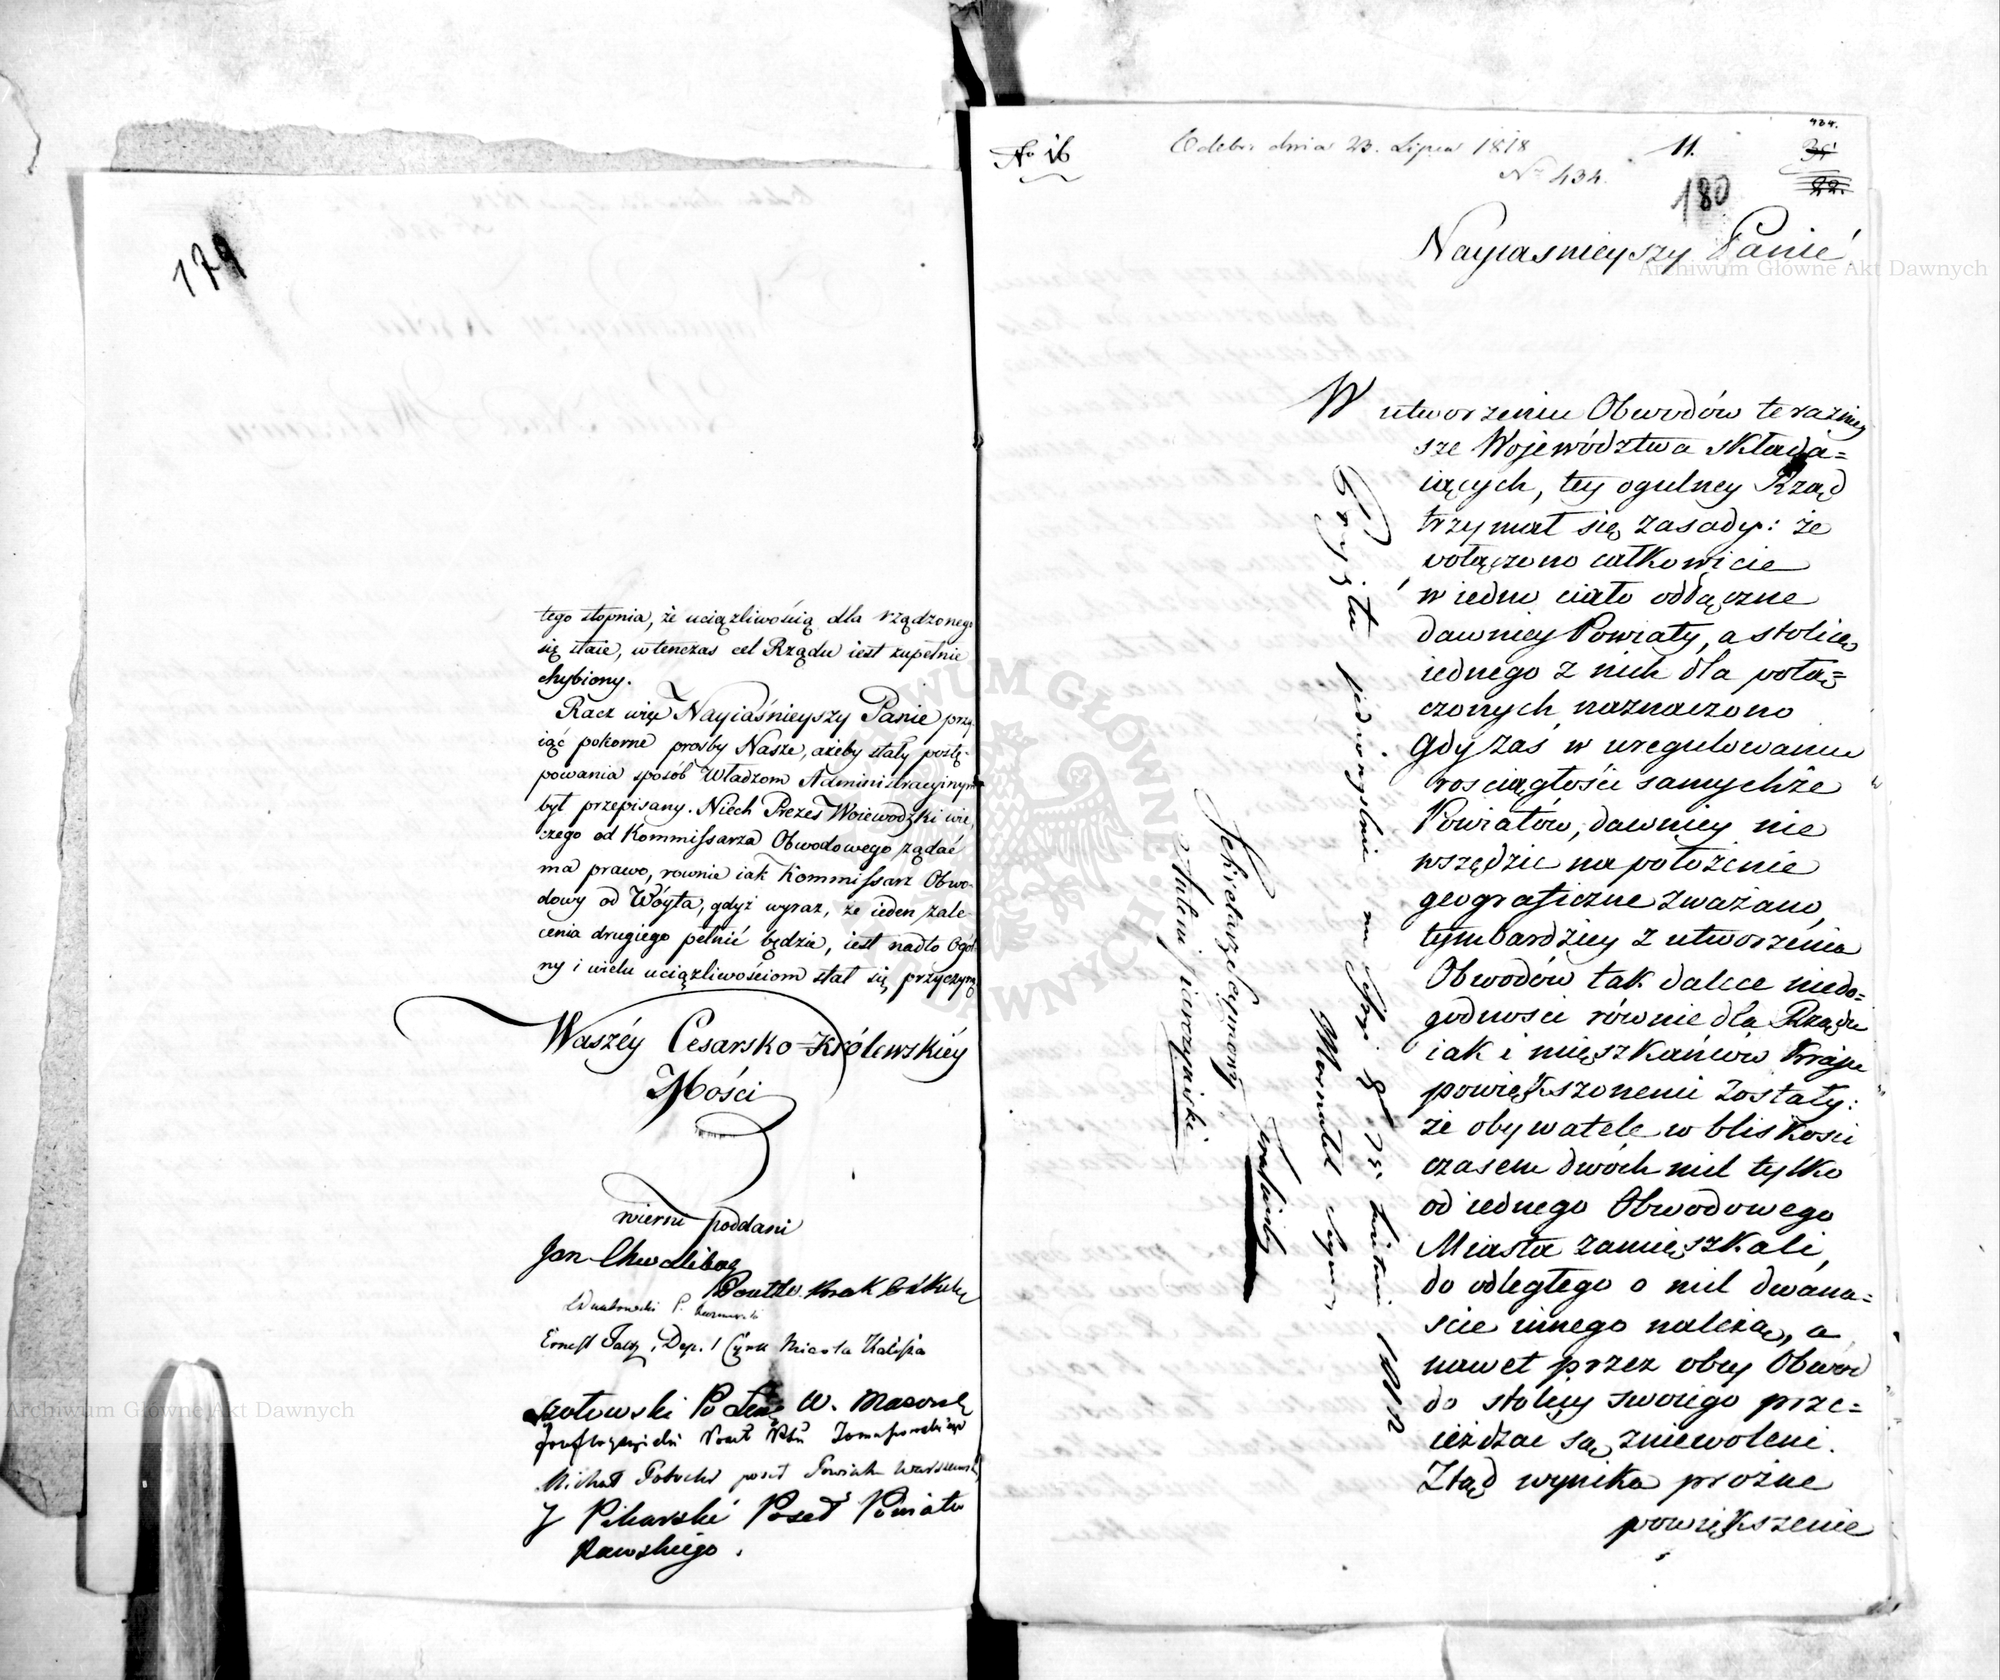 179
tego stopnia, że uciążliwością dla rządzonego
się staie, wtenczas cel Rządu iest zupełnie
chybiony.
Racz więc Nayiaśnieyszy Panie przy-
iąć pokorne prosby Nasze, ażeby stały postę-
powania sposób Władzom Administracyinym
był przepisany. Niech Prezes Woiewodzki wie,
czego od Kommissarza Obwodowego żądać
ma prawo, rownie iak Kommissarz Obwo-
dowy od Wóyta, gdyż wyraz, że ieden zale-
cenia drugiego pełnić będzie, iest nadto Ogól-
ny i wielu uciążliwościom stał się przyczyną
Waszéy Cesarsko-Królewskiéy
Mości
wierni poddani
Jan Chwalibog
Ernest Dep. Cyrk Miasta Kalisza
W.
Michał Potocki poseł Powiatu Warszawsk
J Poseł Powiatu
Rawskiego.
No 16
Odebr. dnia 23. Lipca 1818
No 434.
11.
434.
22.
180
Nayiasnieyszy Panie
W utworzeniu Obwodów teraźniey
sze Województwa składa=
iących, tey ogulney Rząd
trzymał się zasady: że
połączono całkowicie
w iedno ciało oddączne
dawniey Powiaty, a stolicę
iednego z nich dla połą=
czonych naznaczono
Gdy zaś w uregulowaniu
rosciągłości samychże
Powiatów, dawniey nie
wszędzie na położenie
geograficzne zważano,
tymbardziey z utworzenia
Obwodów tak dalece niedo=
godności równie dla Rządu
iak i mięszkańców Kraju
powiększonemi zostały:
że obywatele w bliskości
czasem dwóch mil tylko
od iednego Obwodowego
Miasta zamięszkali,
do odległego o mil dwana=
ście innego należą, a
nawet przez obcy Obwód
do stolicy swoiego prze=
ieżdzać są zniewoleni.
Ztąd wynika prożne
powiększenie
Przyięta iednomyślnie na
1818
Marszałek
Sekretarz Seymowy